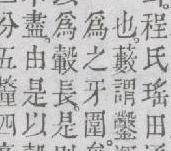 程氏瑤田
也藪謂鑿
爲之牙圍
爲轂長是
盡由是以
分五釐四